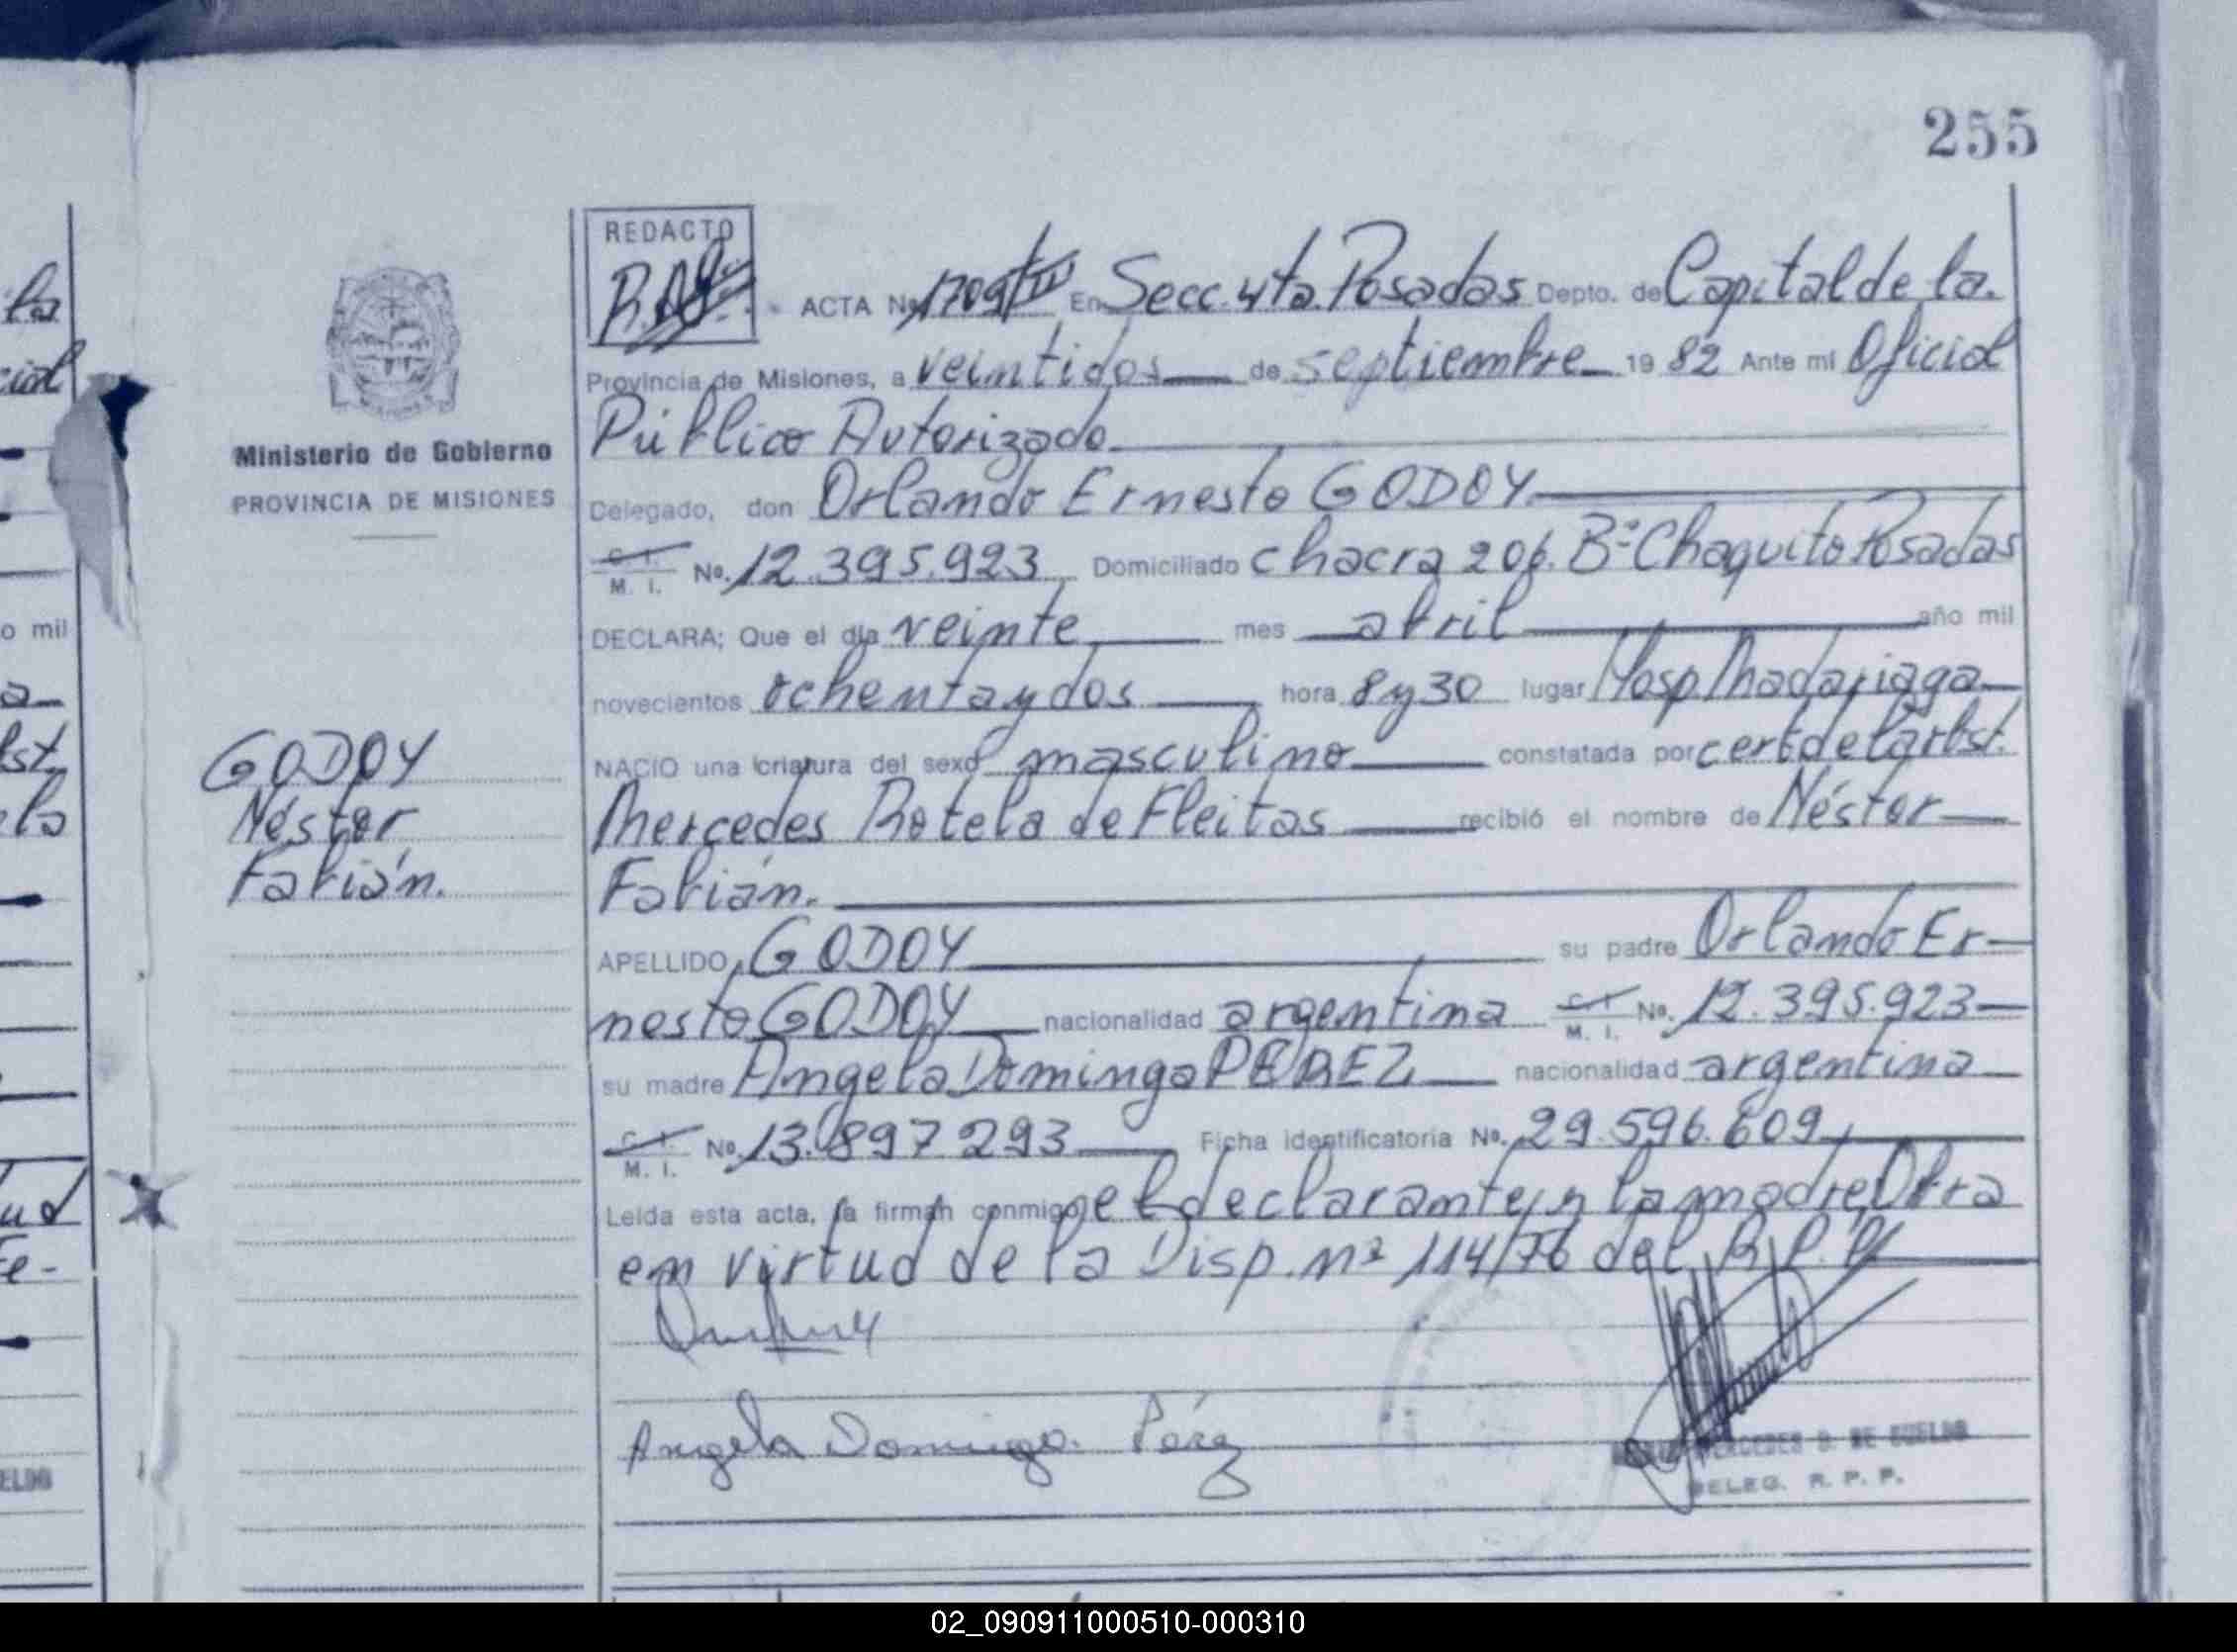 255
REDACTO
ACTA Nº 1709/IV En Secc. 4ta. Posadas Depto. de Capital de la.
Provincia de Misiones, a veintidos de septiembre 1982 Ante mi Oficial
Público Autorizado.
Ministerio de Gobierno
PROVINCIA DE MISIONES
Delegado, don Orlando Ernesto GODOY
C. I. M. I. No. 12.395.923 Domiciliado Chacra 206. Bº Chaquito Posadas
DECLARA; Que el día veinte mes abril año mil
novecientos ochenta y dos hora 8 y 30 lugar Hosp Madariaga
NACIO una criatura del sexo masculino constatada por cert de la obst.
Mercedes Rotela de Fleitas recibió el nombre de Néstor
Fabián.
GODOY
Néstor
Fabián.
APELLIDO, GODOY su padre Orlando Er-
nesto GODOY nacionalidad argentina C. I. M. I. No. 12.395.923
su madre Angela Dominga PEREZ nacionalidad argentina
C. I. M. I. No. 13.897.293 Ficha identificatoria No. 29.596.609
Leída esta acta, la firman conmigo, el declarante, y la madre, Obra
en virtud de la Disp. nº 114/76 del R.P.P.
Angela Dominga Pérez
MERCEDES D. DE CUELDO
DELEG. R. P. P.
la
cial
o mil
a
bst.
la
ud
e-
ELDO
02_090911000510-000310